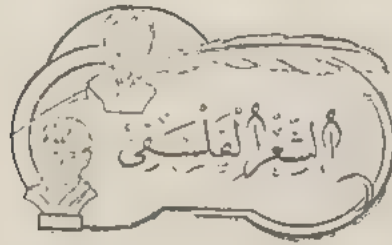 الشعر الفلسفى